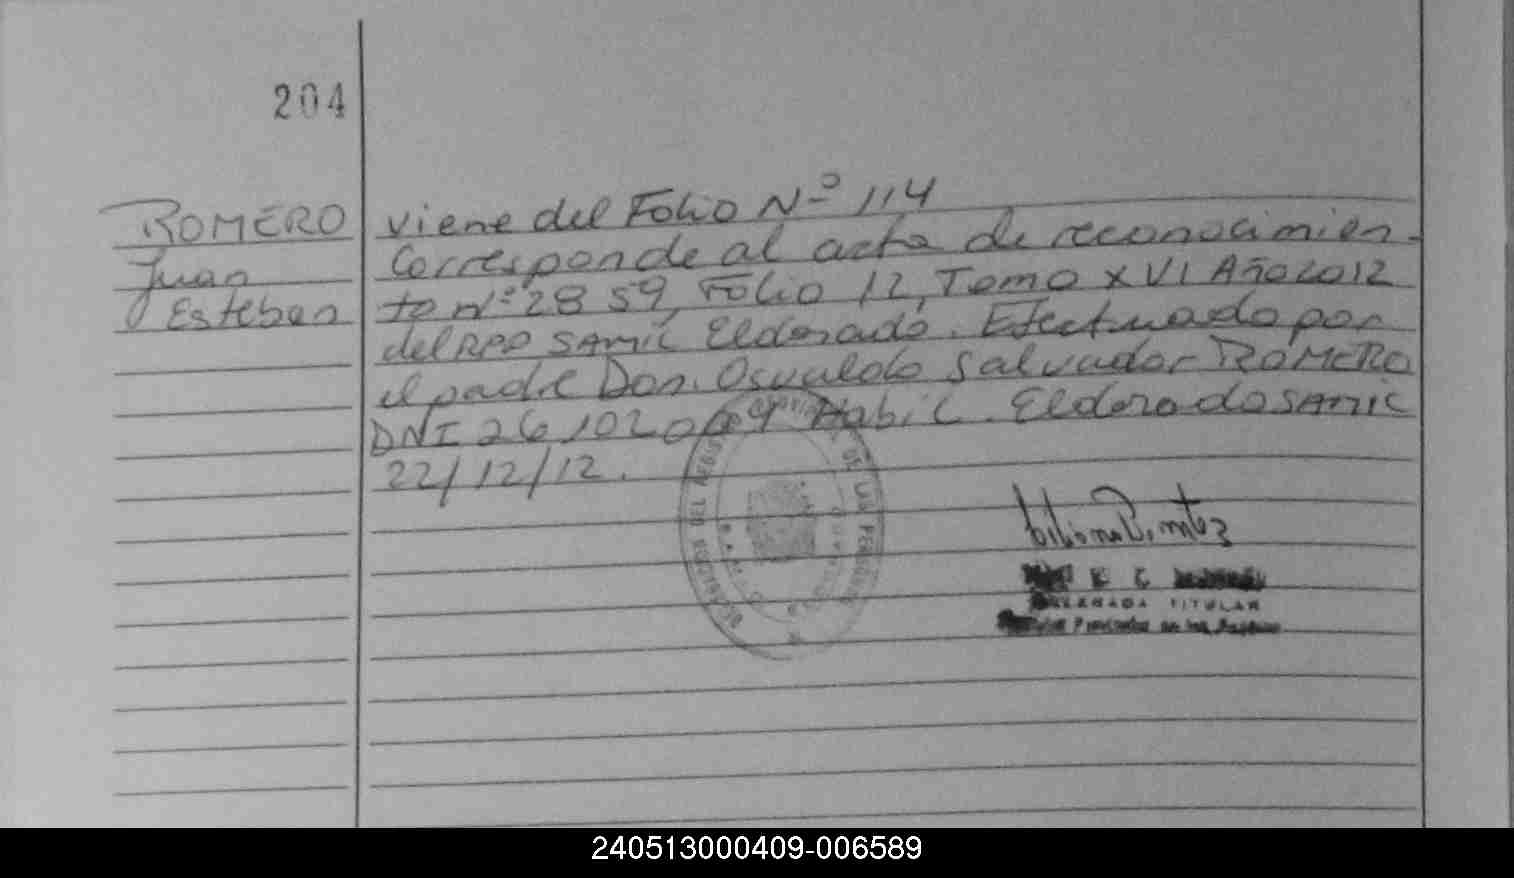 204
ROMERO
Juan
Esteban
viene del Folio Nº 114
Corresponde al acta de reconocimien-
to Nº 2859, Folio 12, Tomo XVI Año 2012
del RPP SAMIC Eldorado. Efectuado por
el padre Don. Osvaldo Salvador ROMERO
DNI 26.102.009 Habil. Eldorado SAMIC
22/12/12.
DEL REGIS
DE LAS PERSONAS
DELEGADA TITULAR
240513000409-006589